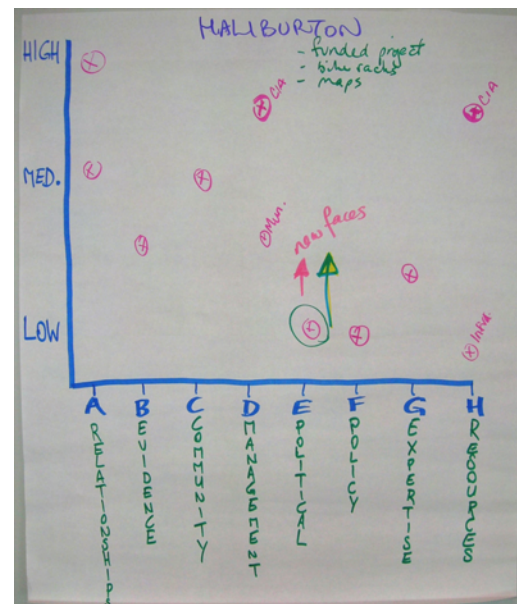 HALIBURTON
- funded project
- bike racks
- maps
HIGH
MED.
LOW
CIA
CIA
Mun.
new faces
Infra.
A
B
C
D
E
F
G
H
RELATIONSHIPS
EVIDENCE
COMMUNITY
MANAGEMENT
POLITICAL
POLICY
EXPERTISE
RESOURCES